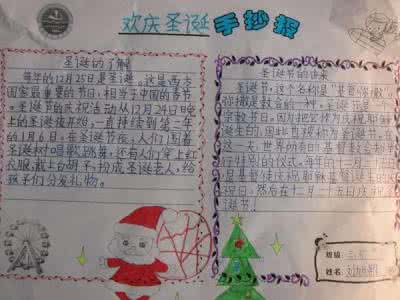 欢庆圣诞手抄报
圣诞的了解
每年的12月25日是圣诞,这是西方
国家最重要的节日,相当于中国的春节
。圣诞节的庆祝活动从12月24日晚
上的圣诞夜开始,一直持续到第二年
的1月6日,在圣诞节夜,人们围着
圣诞树唱歌跳舞,还有人们穿上红
衣服,戴上白胡子,扮成圣诞老人,给
孩子们分发礼物。
圣诞节的由来
圣诞节,这个名称是"基督弥撒",
弥撒是教会的一种。圣诞节是一个
宗教节日,因为把它作为庆祝耶稣
诞生的,因此也称为圣诞节,在
这一天,世界所有的基督教会都举
行特别的仪式,每年的十二月
是基督徒庆祝耶稣基督诞生的庆
祝日,然后在十二月二十五日庆祝
圣诞节。
班级:三
姓名:刘